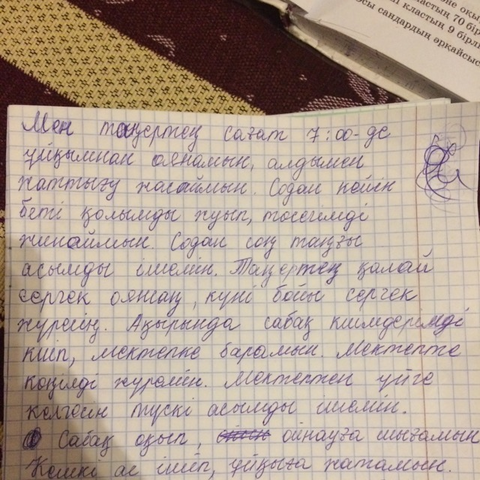 не оқы
ластың 70 бір
ы кластың 9 бірлі
осы сандардың әрқайсыс
Мен таңертең сағат 7:00-де
ұйқымнан оянамын, алдымен
жаттығу жасаймын. Содан кейін
беті қолымды жуып, төсегімді
жинаймын. Содан соң таңғы
асымды ішемін. Таңертең қалай
сергек оянсаң, күні бойы сергек
жүресің. Ақырында сабақ киімдерімді
киіп, мектепке барамын. Мектепте
көңілді жүремін. Мектептен үйге
келгесін түскі асымды ішемін.
Сабақ оқып, ойнауға шығамын
Кешкі ас ішіп, ұйқыға жатамын.